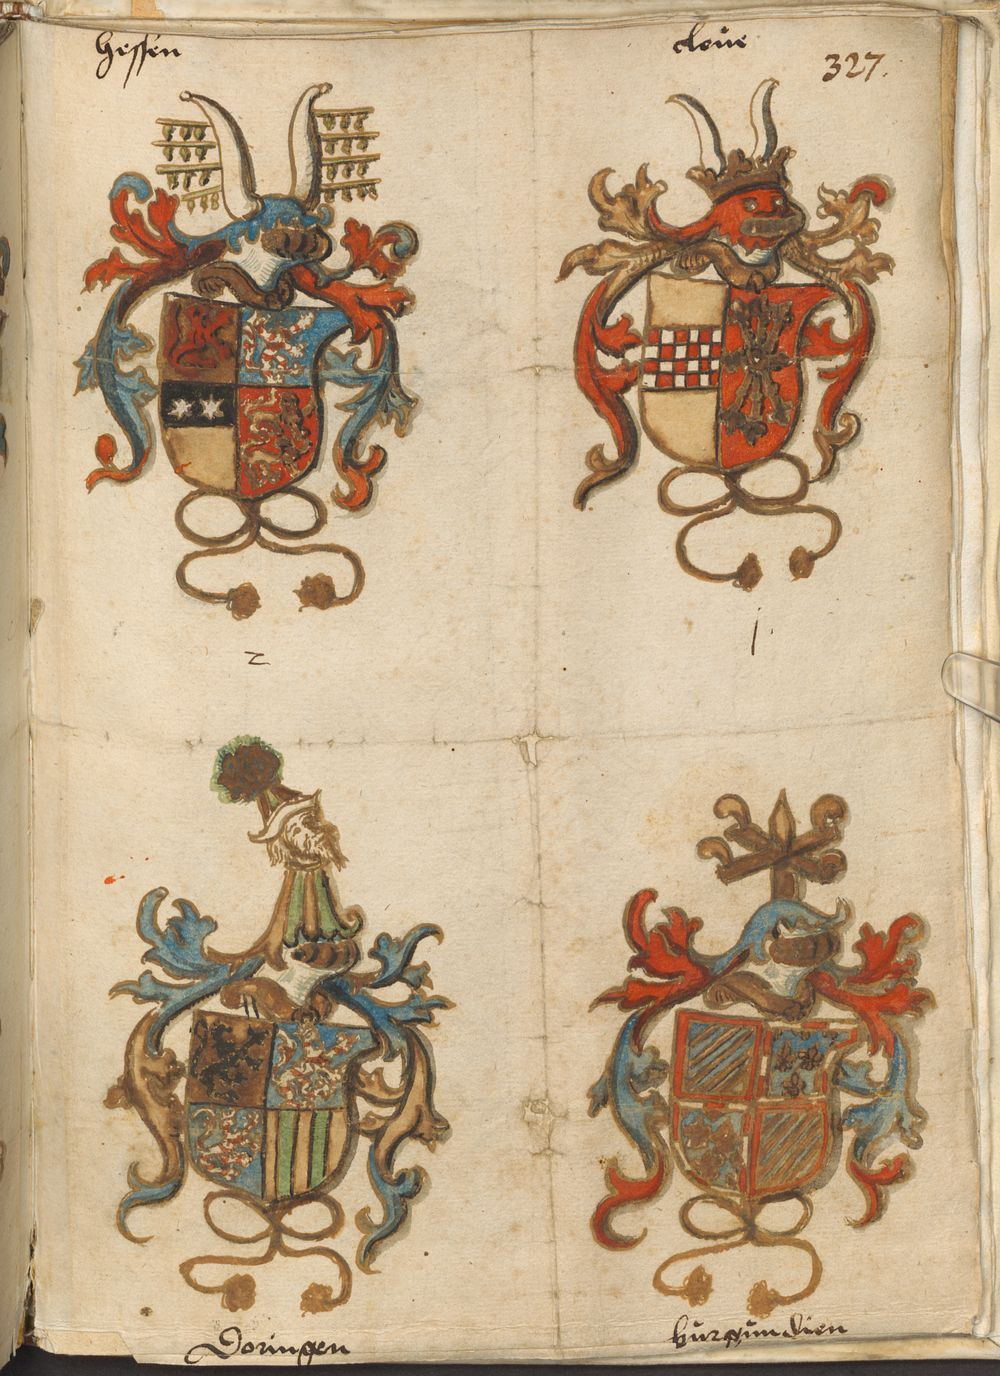 Hessen
cleue
327.
2
1.
Doringen
burgundien